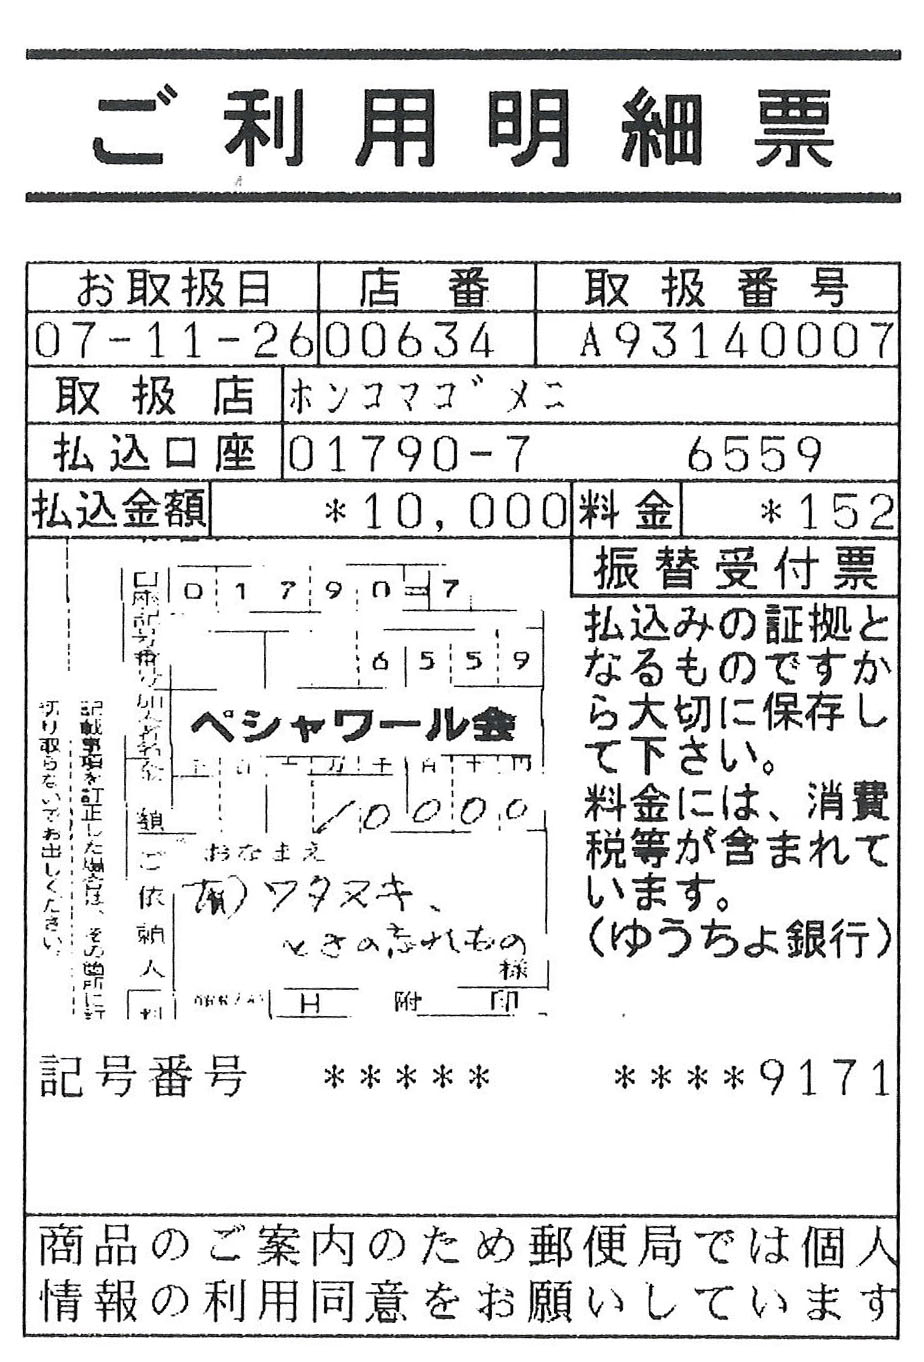 ご利用明細票
お取扱日 店番 取扱番号
07-11-26 00634 A93140007
取扱店 ホンコマゴメニ
払込口座 01790-7 6559
払込金額 *10,000 料金 *152
振替受付票
払込みの証拠と
なるものですか
ら大切に保存し
て下さい。
料金には、消費
税等が含まれて
います。
(ゆうちょ銀行)
01790=7
6559
ペシャワール会
千百十円
10000
おなまえ
(有)ワタヌキ、
ときの忘れもの
様
ご依頼人
日附印
記載事項を訂正した場合は、その箇所に訂
切り取らないでお出しください。
記号番号 ***** ****9171
商品のご案内のため郵便局では個人
情報の利用同意をお願いしています